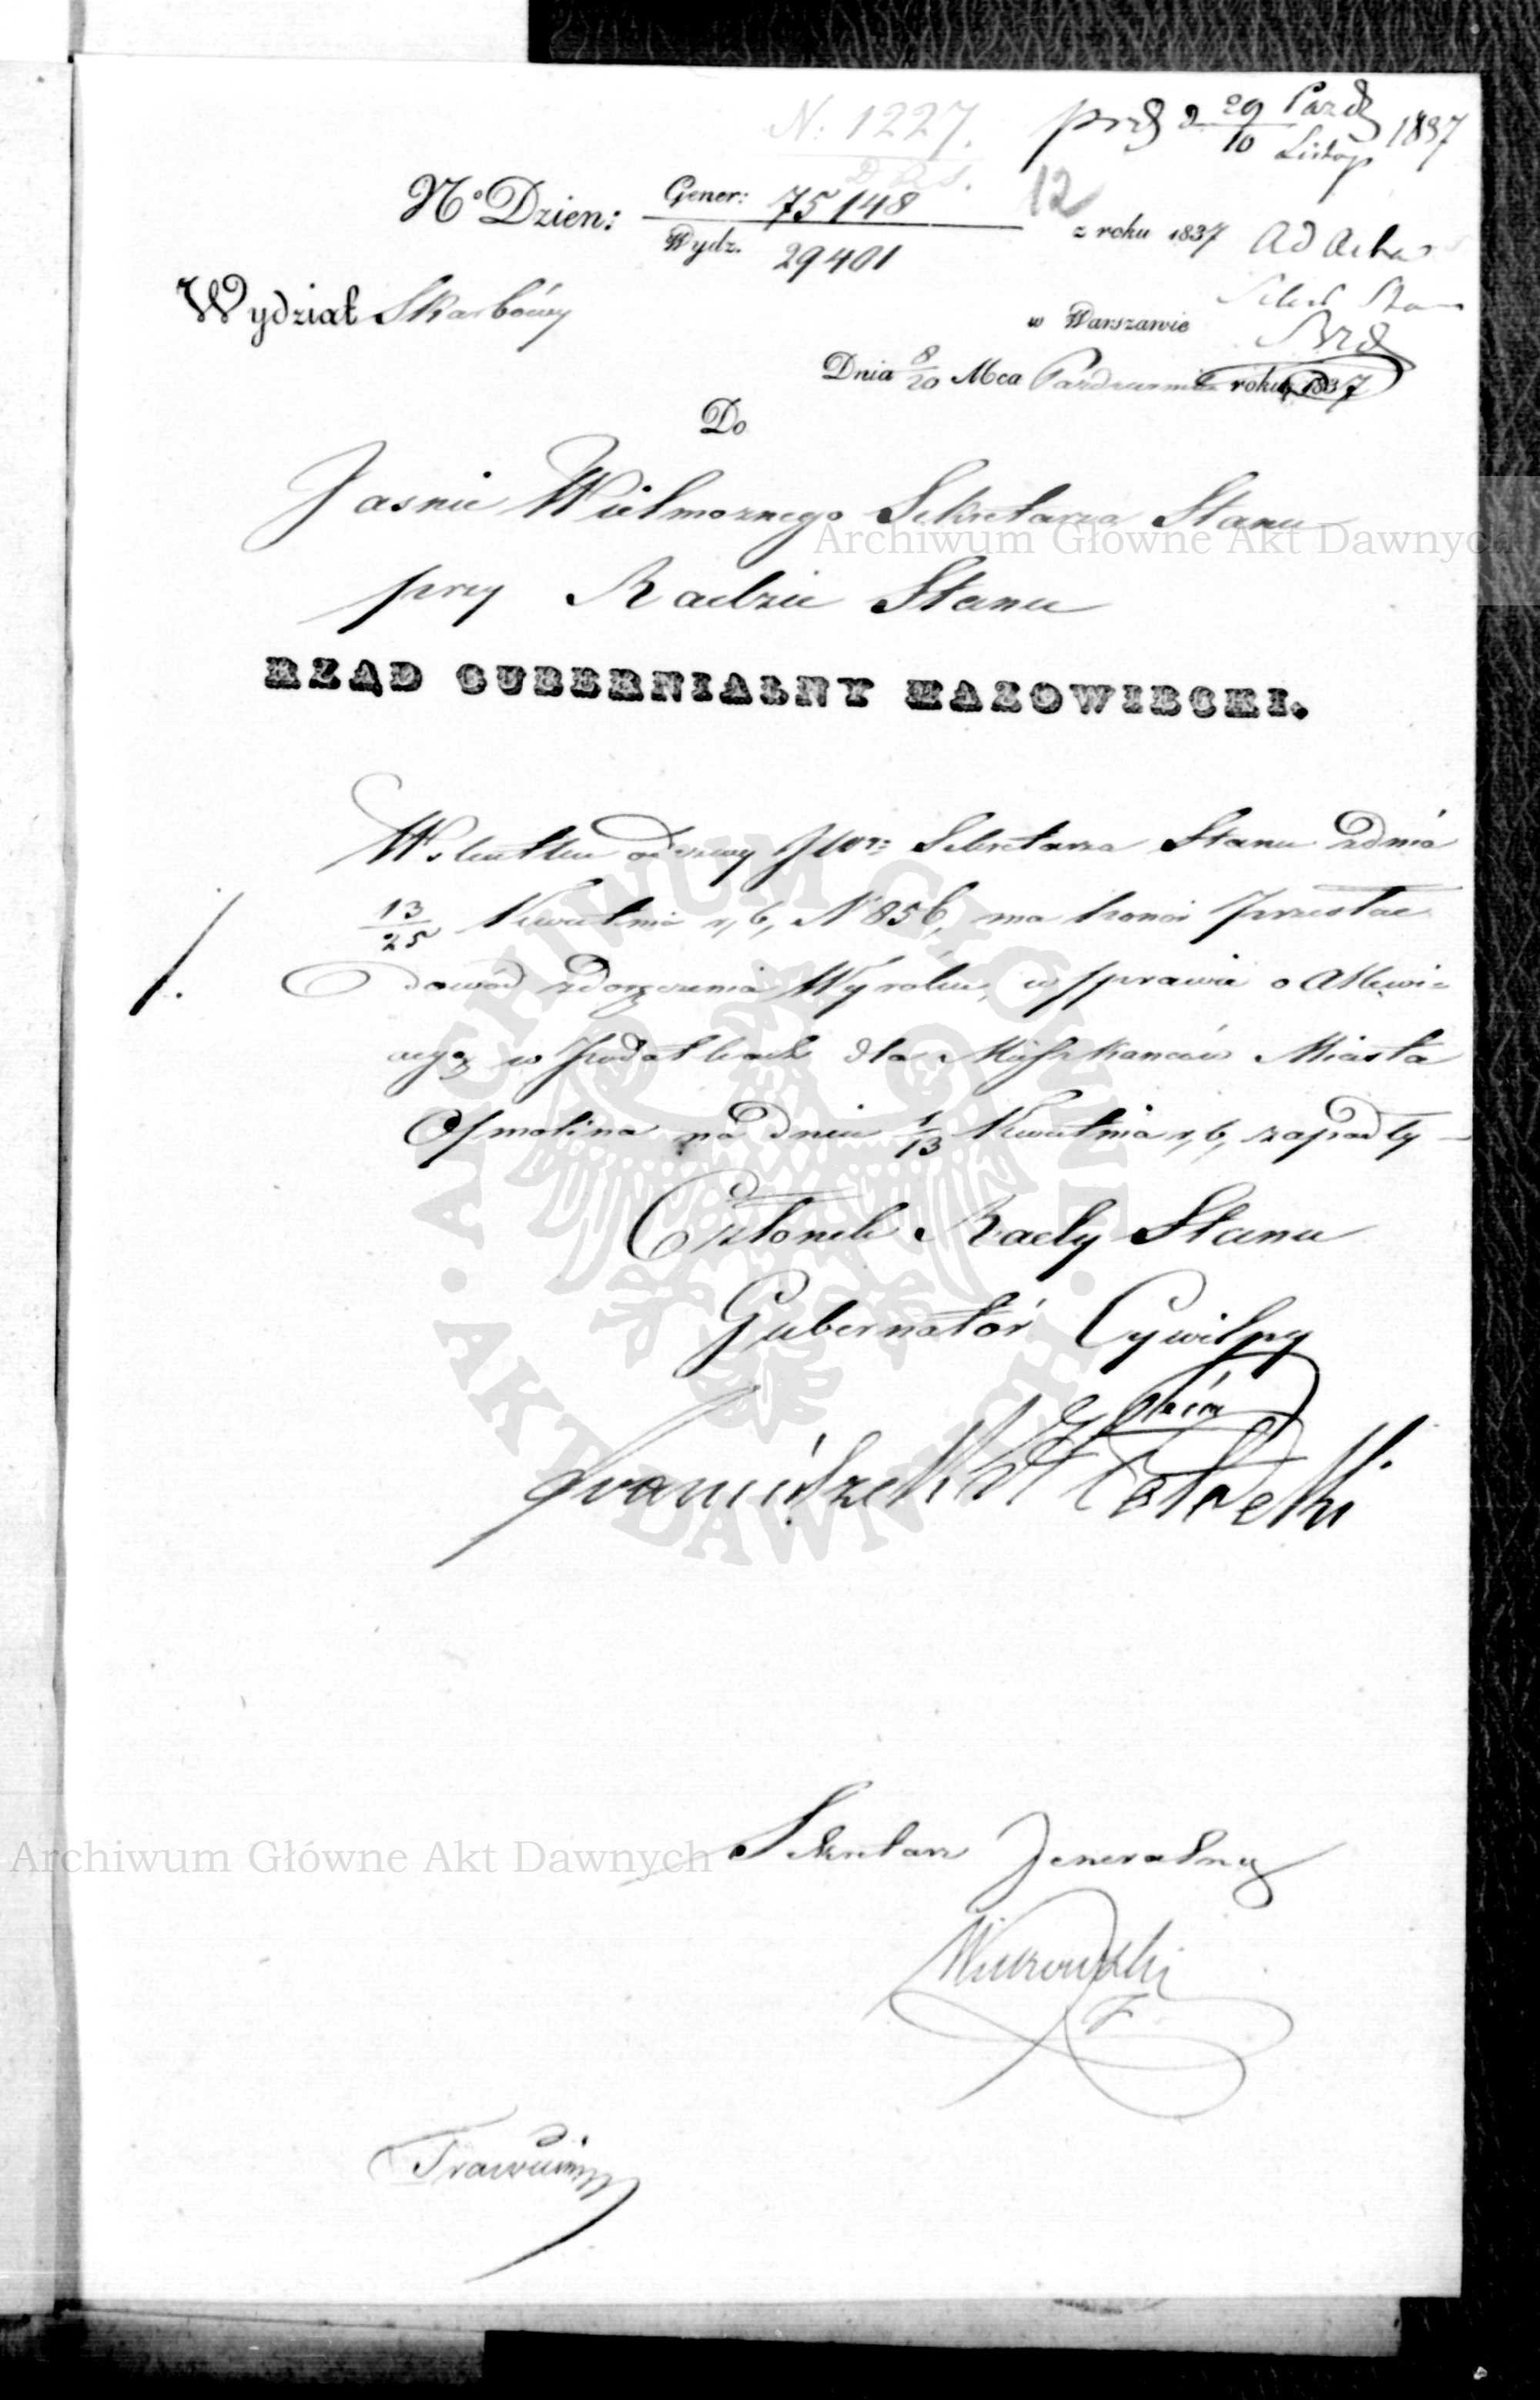 N: 1227.
prz d 29 Paźdz / 10 Listop 1837
12
No Dzien: Gener: 75148 / Wydz. 29401 z roku 1837
Ad Acta
Wydział Skarbówy
w Warszawie
Dnia 8/20 Mca Pazdziernika roku 1837
Do
Jasnie Wielmoznego Sekretarza Stanu
przy Radzie Stanu
RZĄD GUBERNIALNY MAZOWIECKI.
Wskutku odezwy JWo: Sekretarza Stanu zdnia
13/25 Kwietnia r, b, N 856, ma honor przesłac
/.
Dowod zdoręczenia Wyroku, w sprawie o
w podatkach dla Mieszkanców Miasta
Osmolina na dniu 1/13 Kwietnia r, b, zapadły —
Członek Rady Stanu
Gubernatór Cywilny
Franciszek
Sekretarz Jeneralny
Archiwum Główne Akt Dawnych
Archiwum Główne Akt Dawnych
ARCHIWUM GŁÓWNE
AKT DAWNYCH